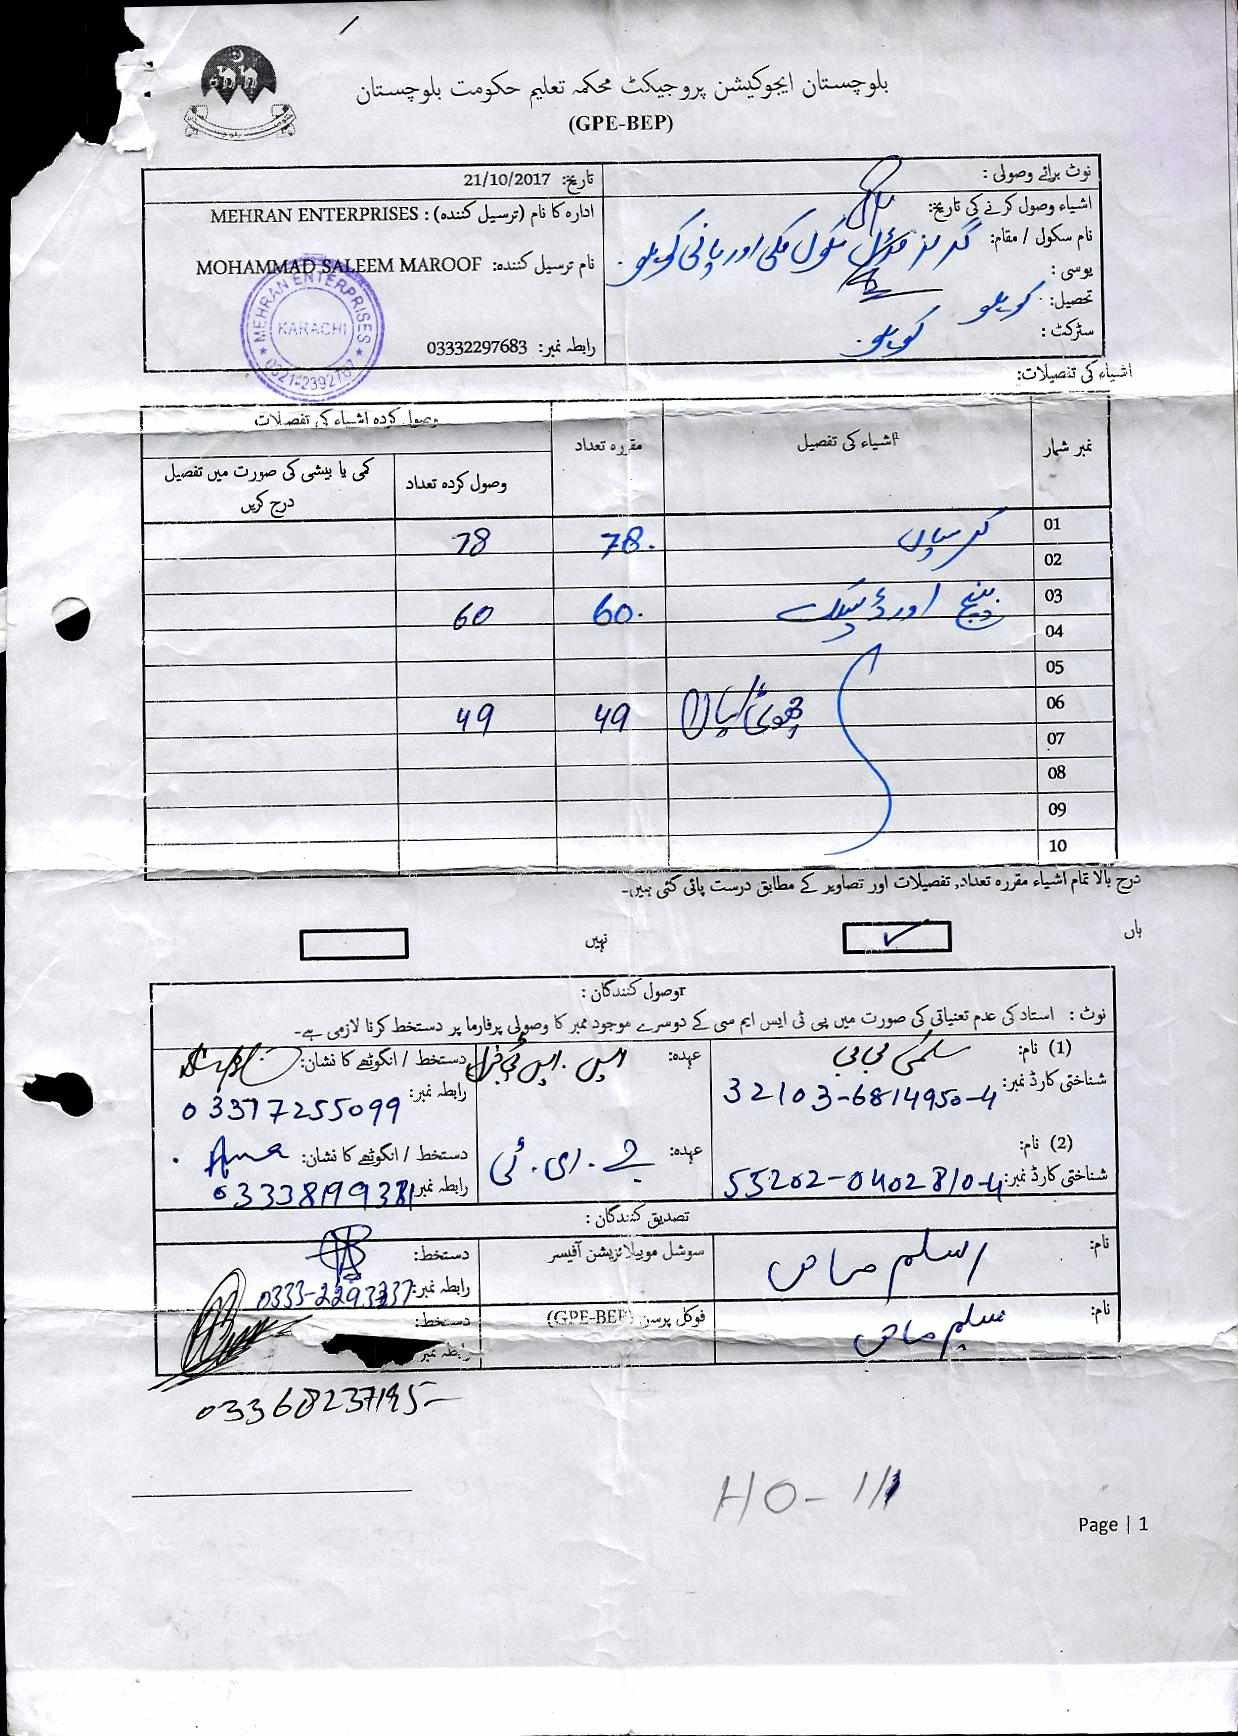 بلوچستان ایجوکیشن پروجیکٹ محکمہ تعلیم حکومت بلوچستان
(GPE-BEP)
نوٹ برائے وصولی :
تاریخ: 21/10/2017
اشیاء وصول کرنے کی تاریخ:
ادارہ کا نام (ترسیل کنندہ) : MEHRAN ENTERPRISES
نام سکول / مقام: گرلز مڈل سکول مکی اور پانی کوہلو
نام ترسیل کنندہ: MOHAMMAD SALEEM MAROOF
یوسی :
تحصیل: کوہلو
سٹرکٹ : کوہلو
رابطہ نمبر: 03332297683
MEHRAN ENTERPRISES
KARACHI
0321-2392767
اشیاء کی تفصیلات:
نمبر شمار اشیاء کی تفصیل مقررہ تعداد وصول کردہ اشیاء کی تفصلات
وصول کردہ تعداد کمی یا بیشی کی صورت میں تفصیل درج کریں
01 کرسیاں 78. 78
02
03 بینچ اور ڈیسک 60. 60
04
05
06 49 49
07
08
09
10
درج بالا تمام اشیاء مقررہ تعداد, تفصیلات اور تصاویر کے مطابق درست پائی گئی ہیں۔
ہاں ✓ نہیں
وصول کنندگان :
نوٹ : استاد کی عدم تعنیاتی کی صورت میں پی ٹی ایس ایم سی کے دوسرے موجود ممبر کا وصولی پرفارما پر دستخط کرنا لازمی ہے۔
(1) نام: سلمیٰ بی بی عہدہ: دستخط / انگوٹھے کا نشان:
شناختی کارڈ نمبر: 32103-6814950-4 رابطہ نمبر: 03317255099
(2) نام: عہدہ: جے. ای. ٹی دستخط / انگوٹھے کا نشان:
شناختی کارڈ نمبر: 55202-0402810-4 رابطہ نمبر: 03338199381
تصدیق کنندگان :
نام: اسلم سوشل موبیلائزیشن آفیسر دستخط:
رابطہ نمبر: 0333-2293337
نام: سلیم فوکل پرسن (GPE-BEP) دستخط:
رابطہ نمبر
03368237195
HO-111
Page | 1